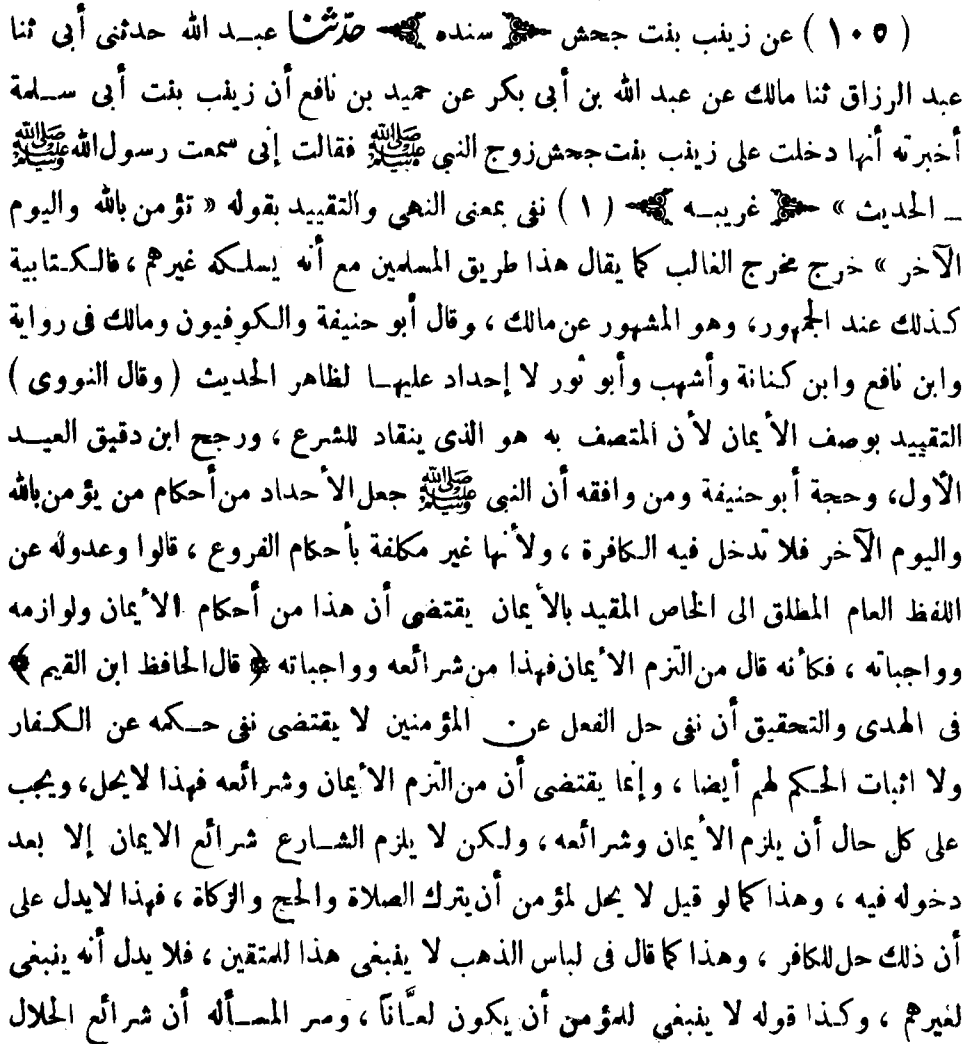 ( ١٠٥ ) عن زينب بنت جحش ﴿ سنده ﴾ حدّثنا عبـد الله حدثنى أبى ثنا
عبد الرزاق ثنا مالك عن عبد الله بن أبى بكر عن حميد بن نافع أن زينب بنت أبى سـلمة
أخبرته أنها دخلت على زينب بنت جحش زوج النبى ﷺ فقالت إنى سمعت رسول الله ﷺ
ـ الحديث » ﴿ غريبـه ﴾ ( ١ ) نفى بمعنى النهى والتقييد بقوله « تؤمن بالله واليوم
الآخر » خرج مخرج الغالب كما يقال هذا طريق المسلمين مع أنه يسلكه غيرهم ، فالكـتابية
كـذلك عند الجمهور، وهو المشهور عن مالك ، وقال أبو حنيفة والكوفيون ومالك فى رواية
وابن نافع وابن كـنانة وأشهب وأبو ثور لا إحداد عليهـا لظاهر الحديث ( وقال النووى )
التقييد بوصف الأيمان لأن المتصف به هو الذى ينقاد للشرع ، ورجح ابن دقيق العيـد
الأول، وحجة أبو حنيفة ومن وافقه أن النبى ﷺ جعل الأحداد من أحكام من يؤمن بالله
واليوم الآخر فلا تدخل فيه الـكافرة ، ولأنها غير مكلفة بأحكام الفروع ، قالوا وعدوله عن
اللفظ العام المطلق الى الخاص المقيد بالأيمان يقتضى أن هذا من أحكام الأيمان ولوازمه
وواجباته ، فكأنه قال من التزم الأيمان فهذا من شرائعه وواجباته ﴿ قال الحافظ ابن القيم ﴾
فى الهدى والتحقيق أن نفى حل الفعل عن المؤمنين لا يقتضى نفى حـكمه عن الـكـفار
ولا اثبات الحـكم لهم أيضا ، وإنما يقتضى أن من التزم الأيمان وشرائعه فهذا لايحل، ويجب
على كل حال أن يلزم الأيمان وشرائعه ، ولـكن لا يلزم الشـارع شرائع الايمان إلا بعد
دخوله فيه ، وهذا كما لو قيل لا يحل لمؤمن أن يترك الصلاة والحج والزكاة ، فهذا لايدل على
أن ذلك حل للكافر ، وهذا كما قال فى لباس الذهب لا ينبغى هذا للمتقين ، فلا يدل أنه ينبغى
لغيرهم ، وكـذا قوله لا ينبغى للمؤمن أن يكون لعَّانًا ، وسر المسـأله أن شرائع الحلال